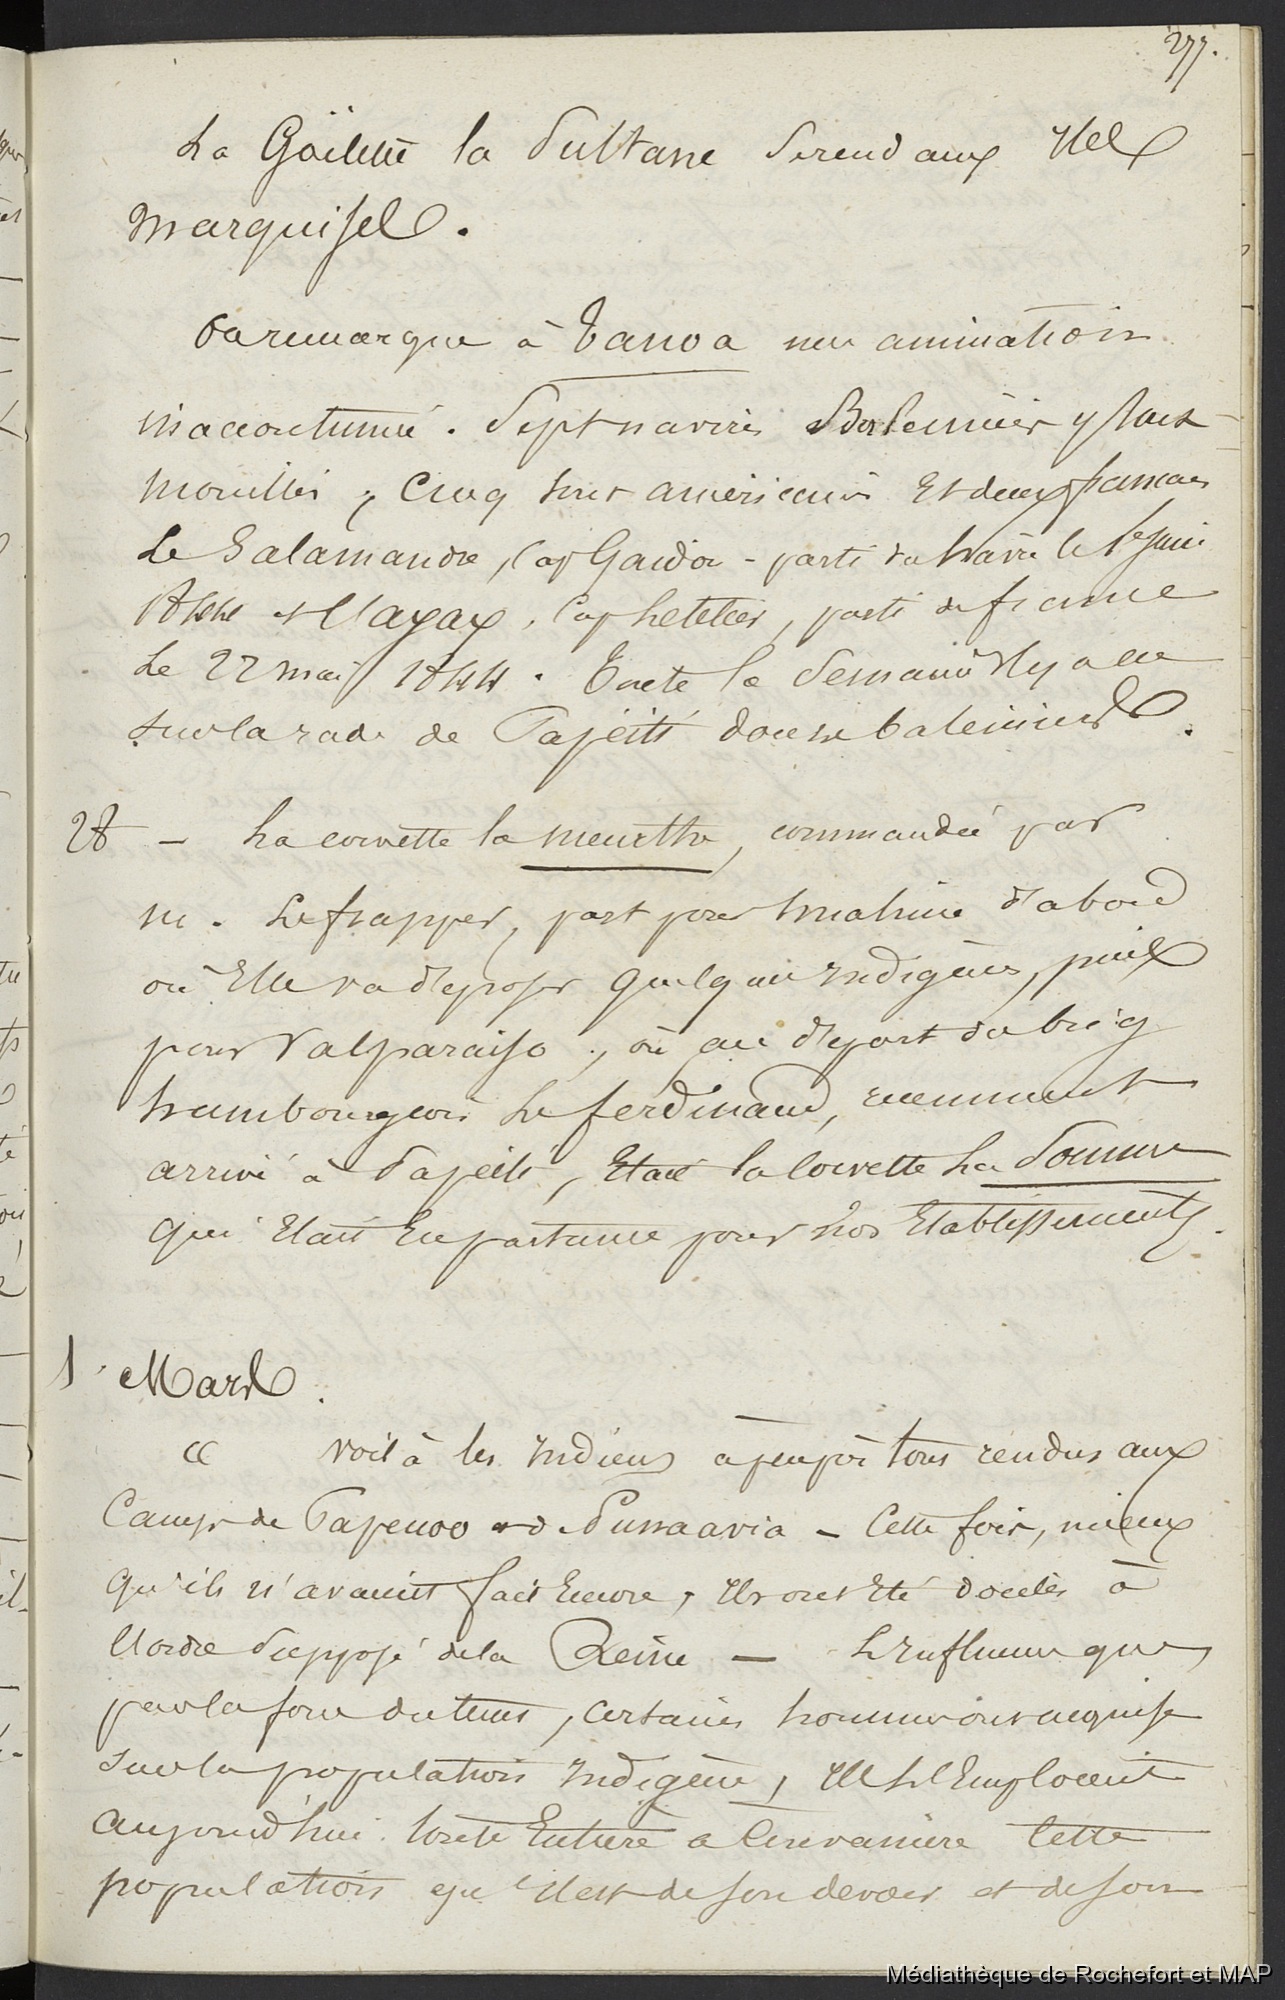 277.
La Goëlette la Sultane se rend aux Iles
Marquises.
On remarque à Tanoa une animation
inaccoutumée. Sept navires Baleiniers y sont
mouillés, cinq sont américains et deux français
Le Salamandre, Cap Gaidon - parti du havre le 1er Juin
1844 et l'ayax, Cap Letellier, parti de france
Le 22 mai 1844. Toute la semaine il y a eu
sur la rade de Papéiti douze baleiniers.
28 - La corvette la Meurthe, commandée par
M. Lefrapper, part pour huahine d'abord
où Elle va déposer quelques indigènes, puis
pour Valparaiso, où au départ du brig
hambourgeois Le ferdinand, récemment
arrivé à Papéiti, Etait la Corvette La Somme
qui Etait En partance pour nos Etablissements.
1 Mars.
" Voilà les Indiens à peu près tous rendus aux
Camps de Papenoo et de Punaavia - Cette fois, mieux
qu'ils n'avaient fait Encore, Ils ont Eté dociles à
l'ordre supposé de la Reine - L'Influence que,
par la force du tems, certains hommes ont acquise
sur la population Indigène, Ils l'Emploient
aujourd'hui toute Entière à Cette
population qu'il est de son devoir et de son
Médiathèque de Rochefort et MAP